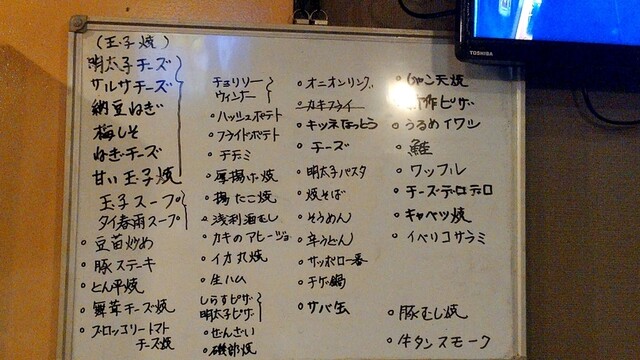 (玉子焼)
明太子チーズ
サルサチーズ
納豆ねぎ
梅しそ
ねぎチーズ
甘い玉子焼
玉子スープ
タイ春雨スープ
豆苗炒め
豚ステーキ
とん平焼
舞茸チーズ焼
ブロッコリートマト
チーズ焼
チョリソー
ウィンナー
ハッシュポテト
フライドポテト
チヂミ
厚揚げ焼
揚たこ焼
浅利酒むし
カキのアヒージョ
イカ丸焼
生ハム
しらすピザ
明太子ピザ
ぜんざい
磯部焼
オニオンリング
カキフライ
キツネなっとう
チーズ
明太子パスタ
焼そば
そうめん
辛うどん
サッポロ一番
チゲ鍋
サバ缶
ジャン天焼
ピザ
うるめイワシ
鮭
ワッフル
チーズデロデロ
キャベツ焼
イベリコサラミ
豚むし焼
牛タンスモーク
TOSHIBA